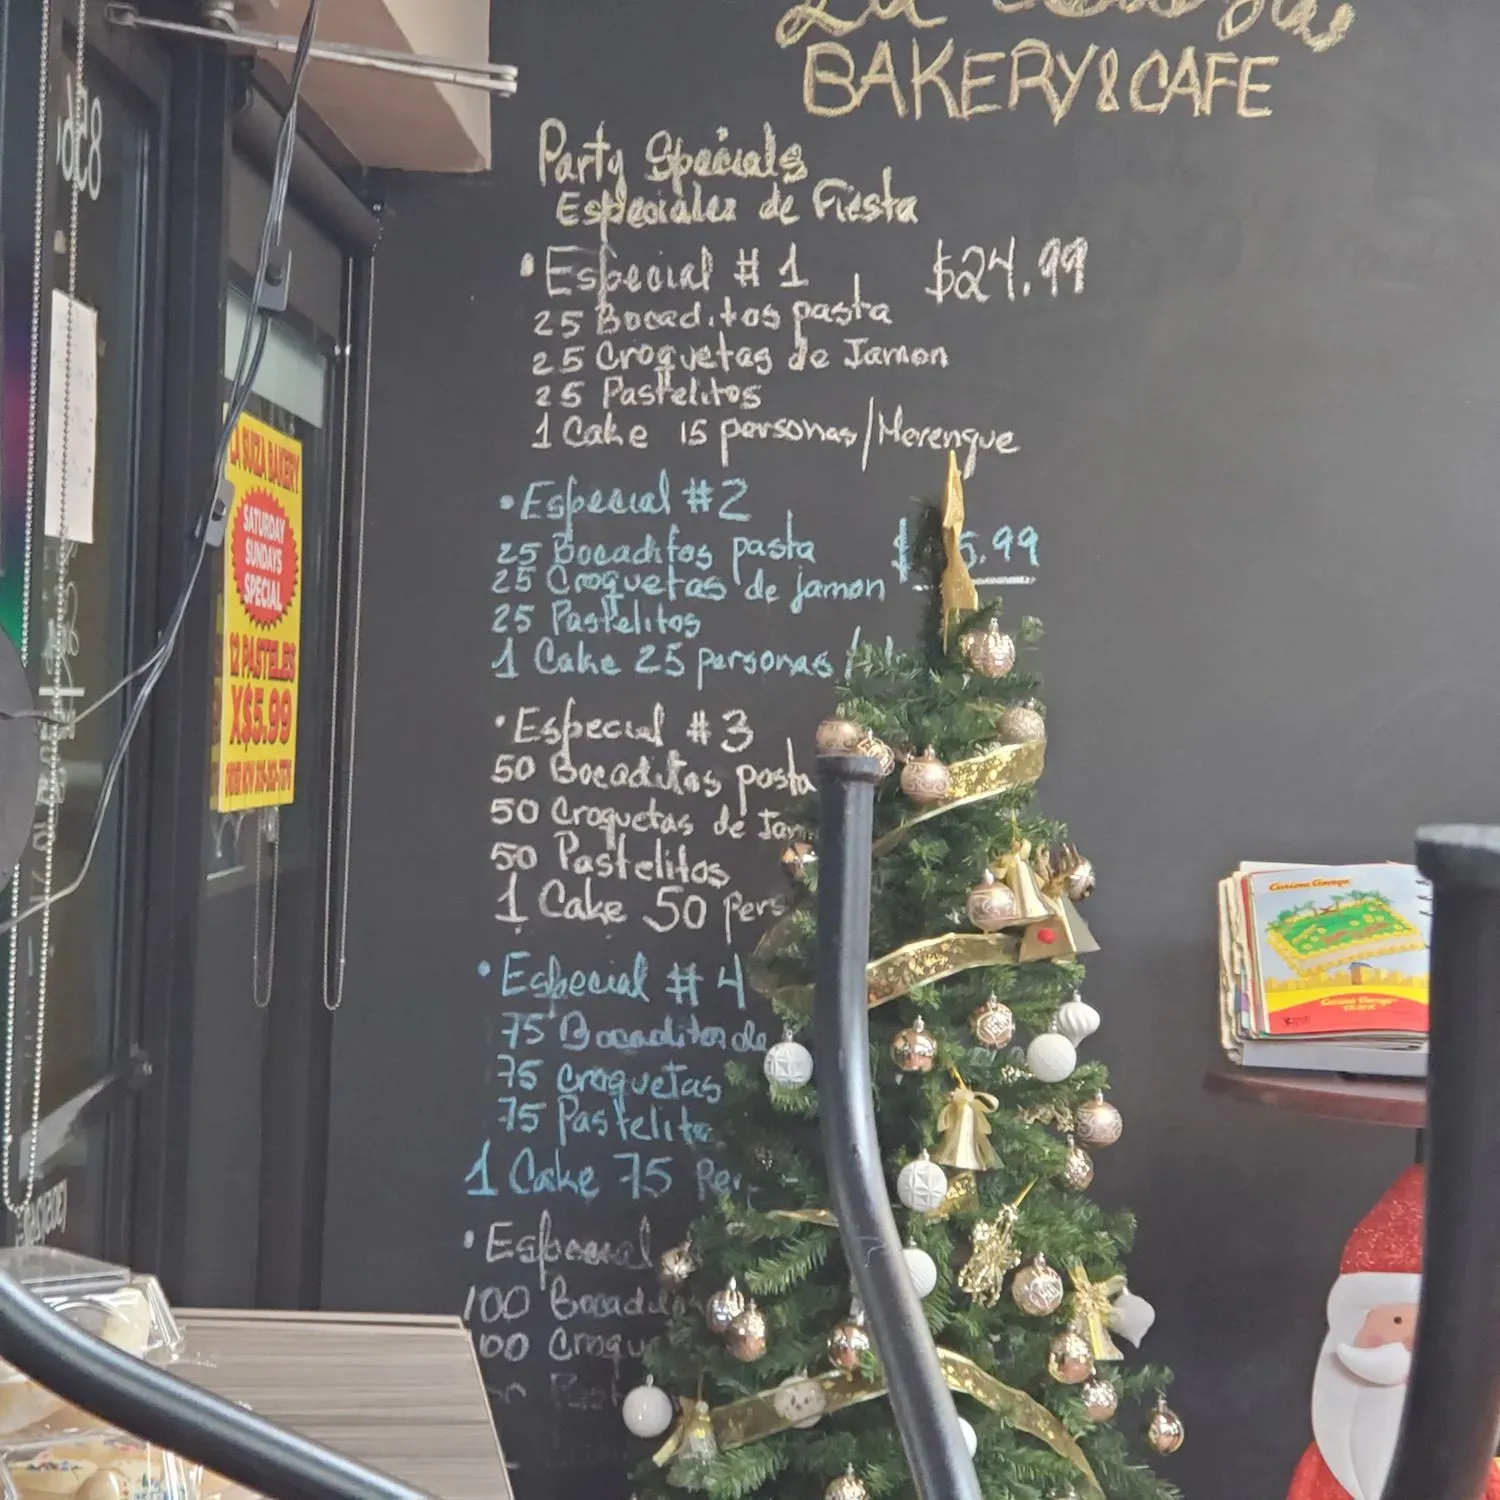 BAKERY & CAFE
Party Specials
Especiales de Fiesta
• Especial # 1 $24.99
25 Bocaditos pasta
25 Croquetas de Jamon
25 Pastelitos
1 Cake 15 personas/Merengue
• Especial #2
25 Bocaditos pasta 5.99
25 Croquetas de jamon
25 Pastelitos
1 Cake 25 personas /
• Especial #3
50 Bocaditos pasta
50 Croquetas de
50 Pastelitos
1 Cake 50
• Especial # 4
75 Bocaditos de
75 croquetas
75
1 Cake 75
• Especial
100
LA SUIZA BAKERY
SATURDAY
SUNDAYS
SPECIAL
12 PASTELES
X$5.99
Curious George